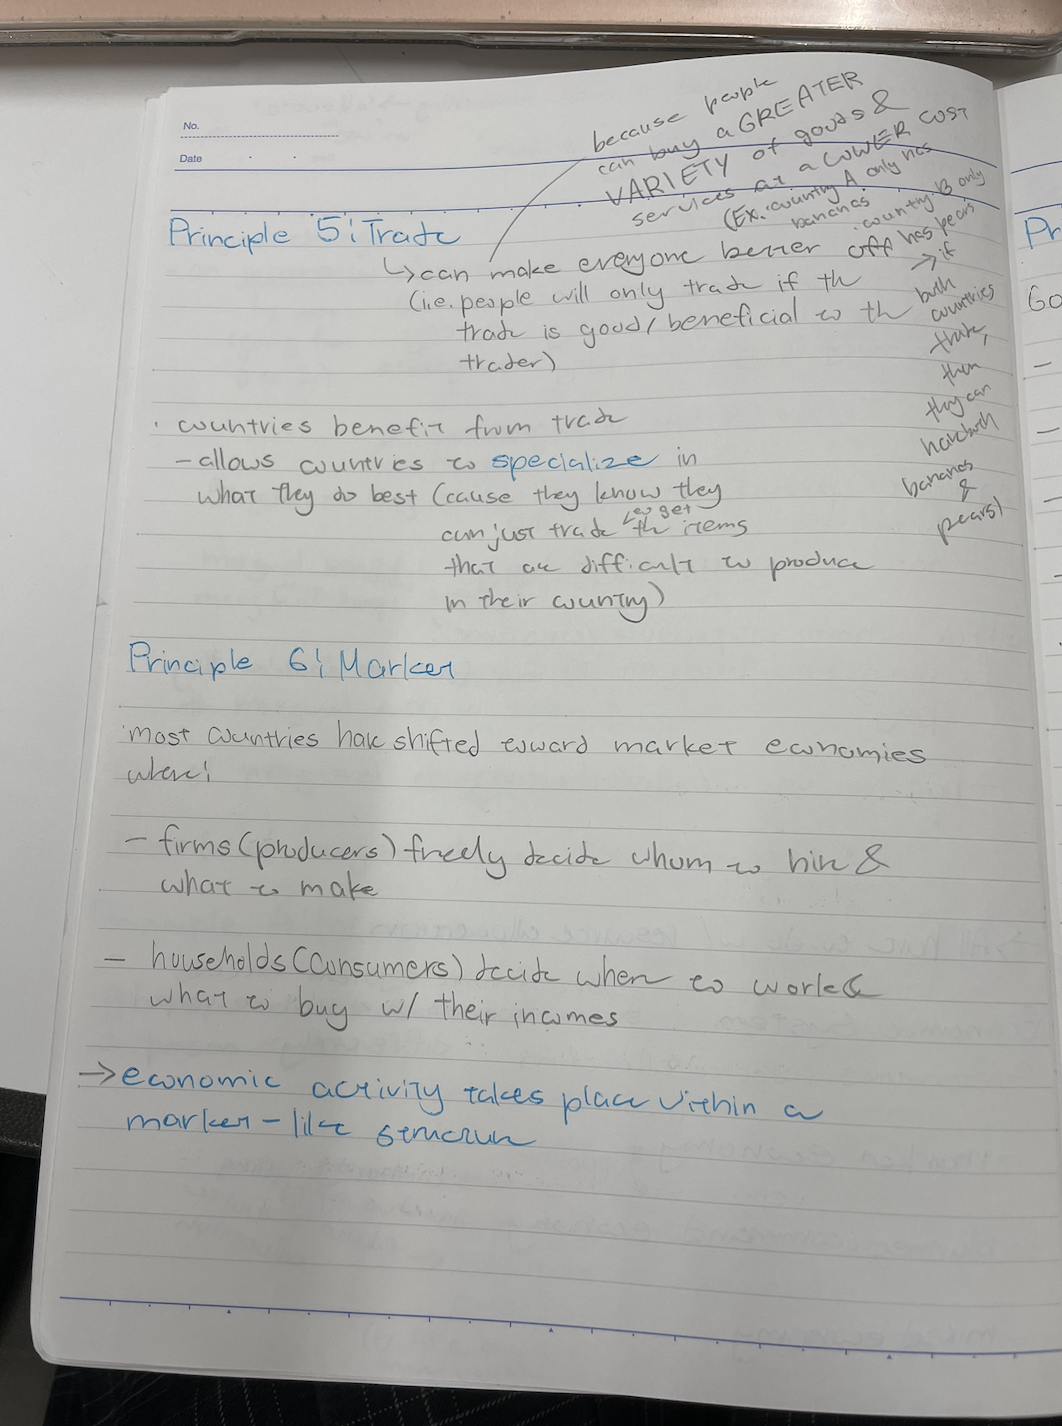 No.
Date
because people
can buy a GREATER
VARIETY of goods &
services at a LOWER COST
(Ex. country A only has
bananas
country B only
has pears
→ if
both
countries
trade,
then
they can
have both
bananas
&
pears)
Principle 5: Trade
↳ can make everyone better off
(i.e. people will only trade if the
trade is good/beneficial to the
trader)
· countries benefit from trade
- allows countries to specialize in
what they do best (cause they know they
can just trade to get the items
that are difficult to produce
in their country)
Principle 6: Market
·most countries have shifted toward market economies
where:
- firms (producers) freely decide whom to hire &
what to make
- households (consumers) decide when to work &
what to buy w/ their incomes
→ economic activity takes place within a
market-like structure
Pr
Go